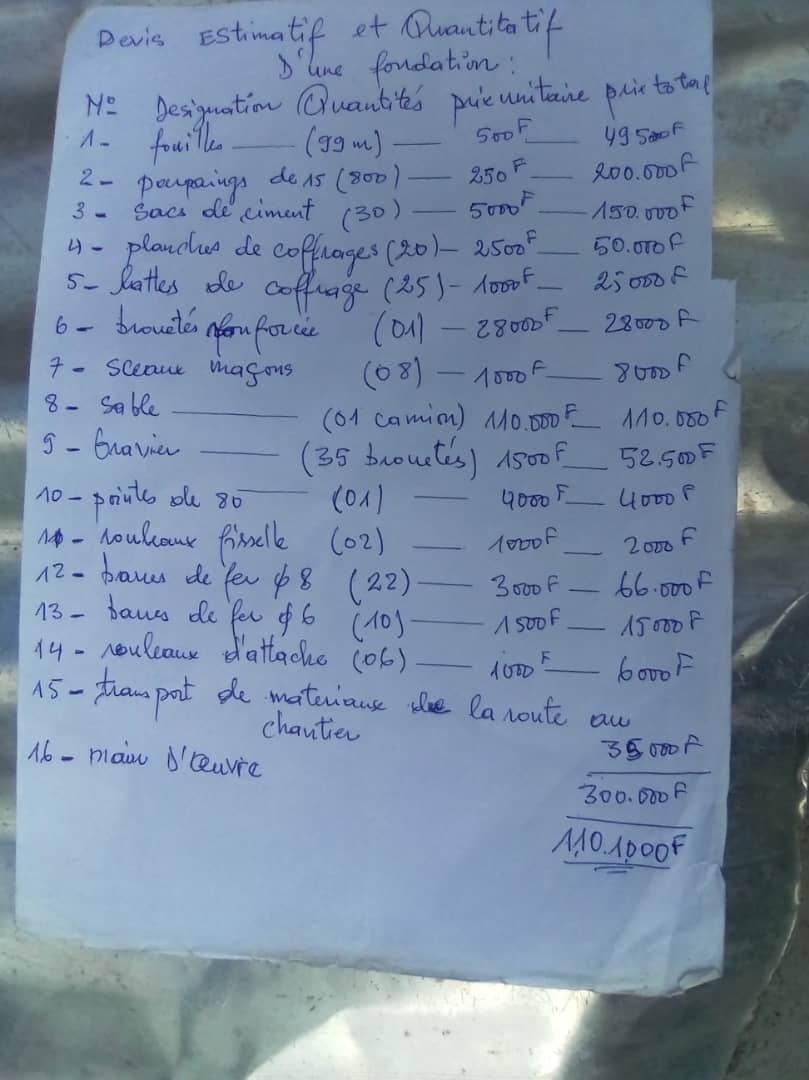 Devis EStimatif et Quantitatif
D'une fondation :
No Designation Quantités prix unitaire prix total
1- fouilles —— (99 m) —— 500F —— 49500F
2 - parpaings de 15 (800) — 250F — 200.000F
3 - Sacs de ciment (30) — 5000F — 150.000F
4 - planches de coffrages (20) — 2500F — 50.000F
5 - lattes de coffrage (25) - 1000F — 25000F
6 - brouetés renforcée (01) — 28000F — 28000F
7 - sceaux maçons (08) — 1000F — 8000F
8 - Sable —— (01 camion) 110.000F — 110.000F
9 - Gravier —— (35 brouetés) 1500F — 52.500F
10 - pointes de 80 —— (01) —— 4000F — 4000F
11 - rouleaux fisselle (02) —— 1000F — 2000F
12 - barres de fer ϕ 8 (22) —— 3000F — 66.000F
13 - barres de fer ϕ 6 (10) —— 1500F — 15000F
14 - rouleaux d'attache (06) —— 1000F —— 6000F
15 - transport de materiaux de la route au
chantier 35000F
16 - main D'œuvre
300.000F
1,10.1,000F